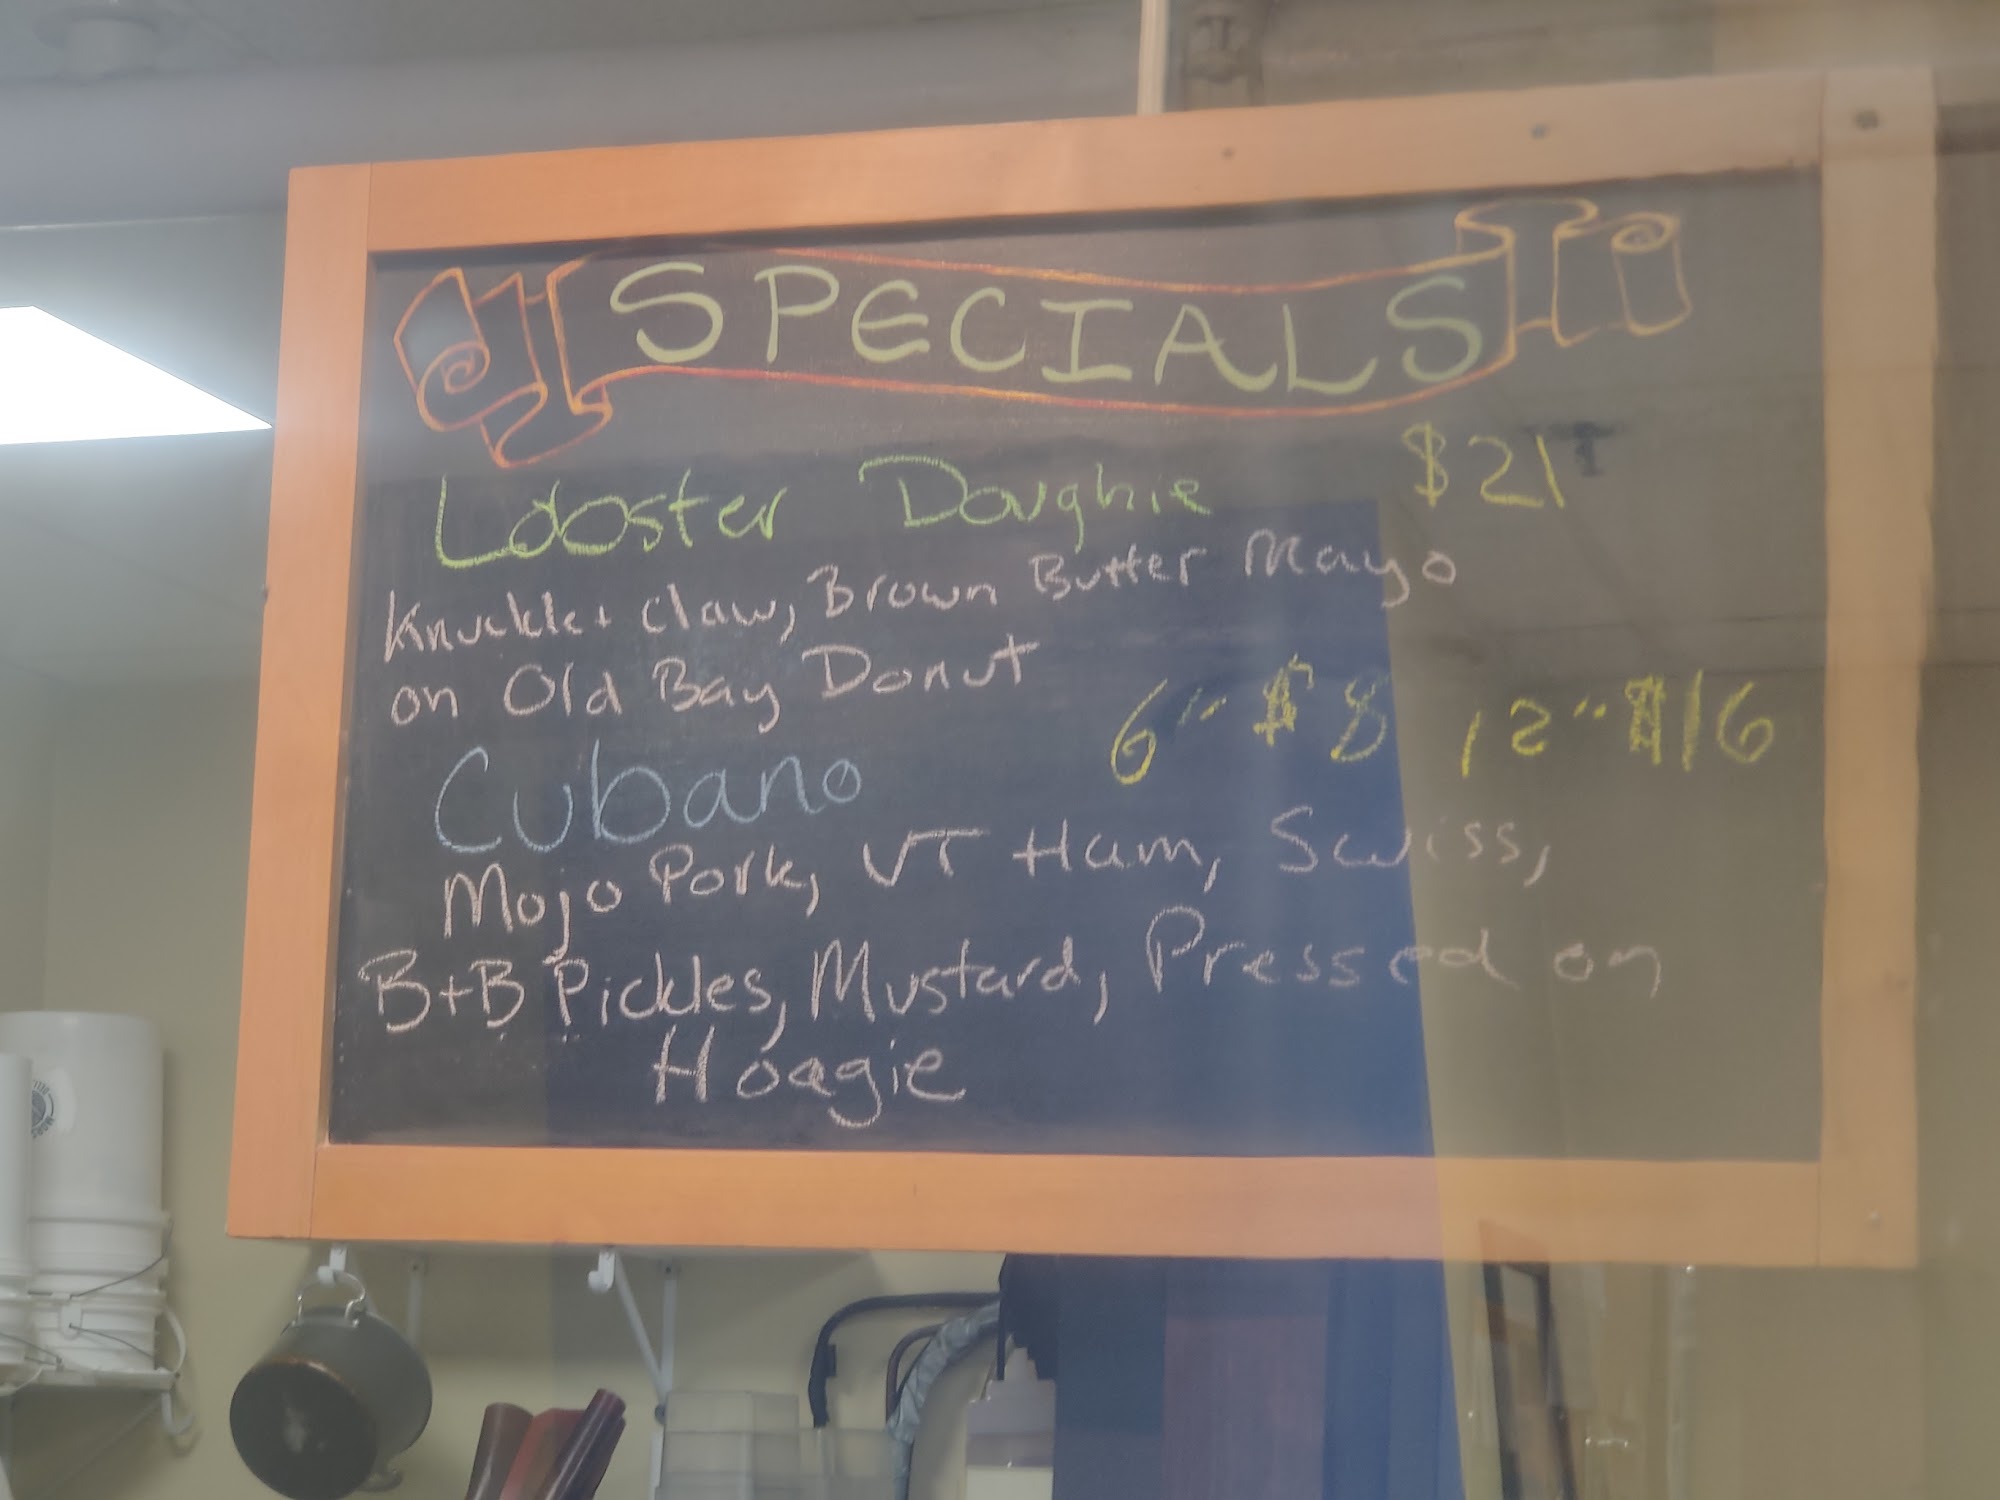 SPECIALS
Lobster Doughie $21
Knuckle + Claw, Brown Butter Mayo
on Old Bay Donut
Cubano 6" $8 12" $16
Mojo Pork, VT Ham, Swiss,
B+B Pickles, Mustard, Pressed on
Hoagie